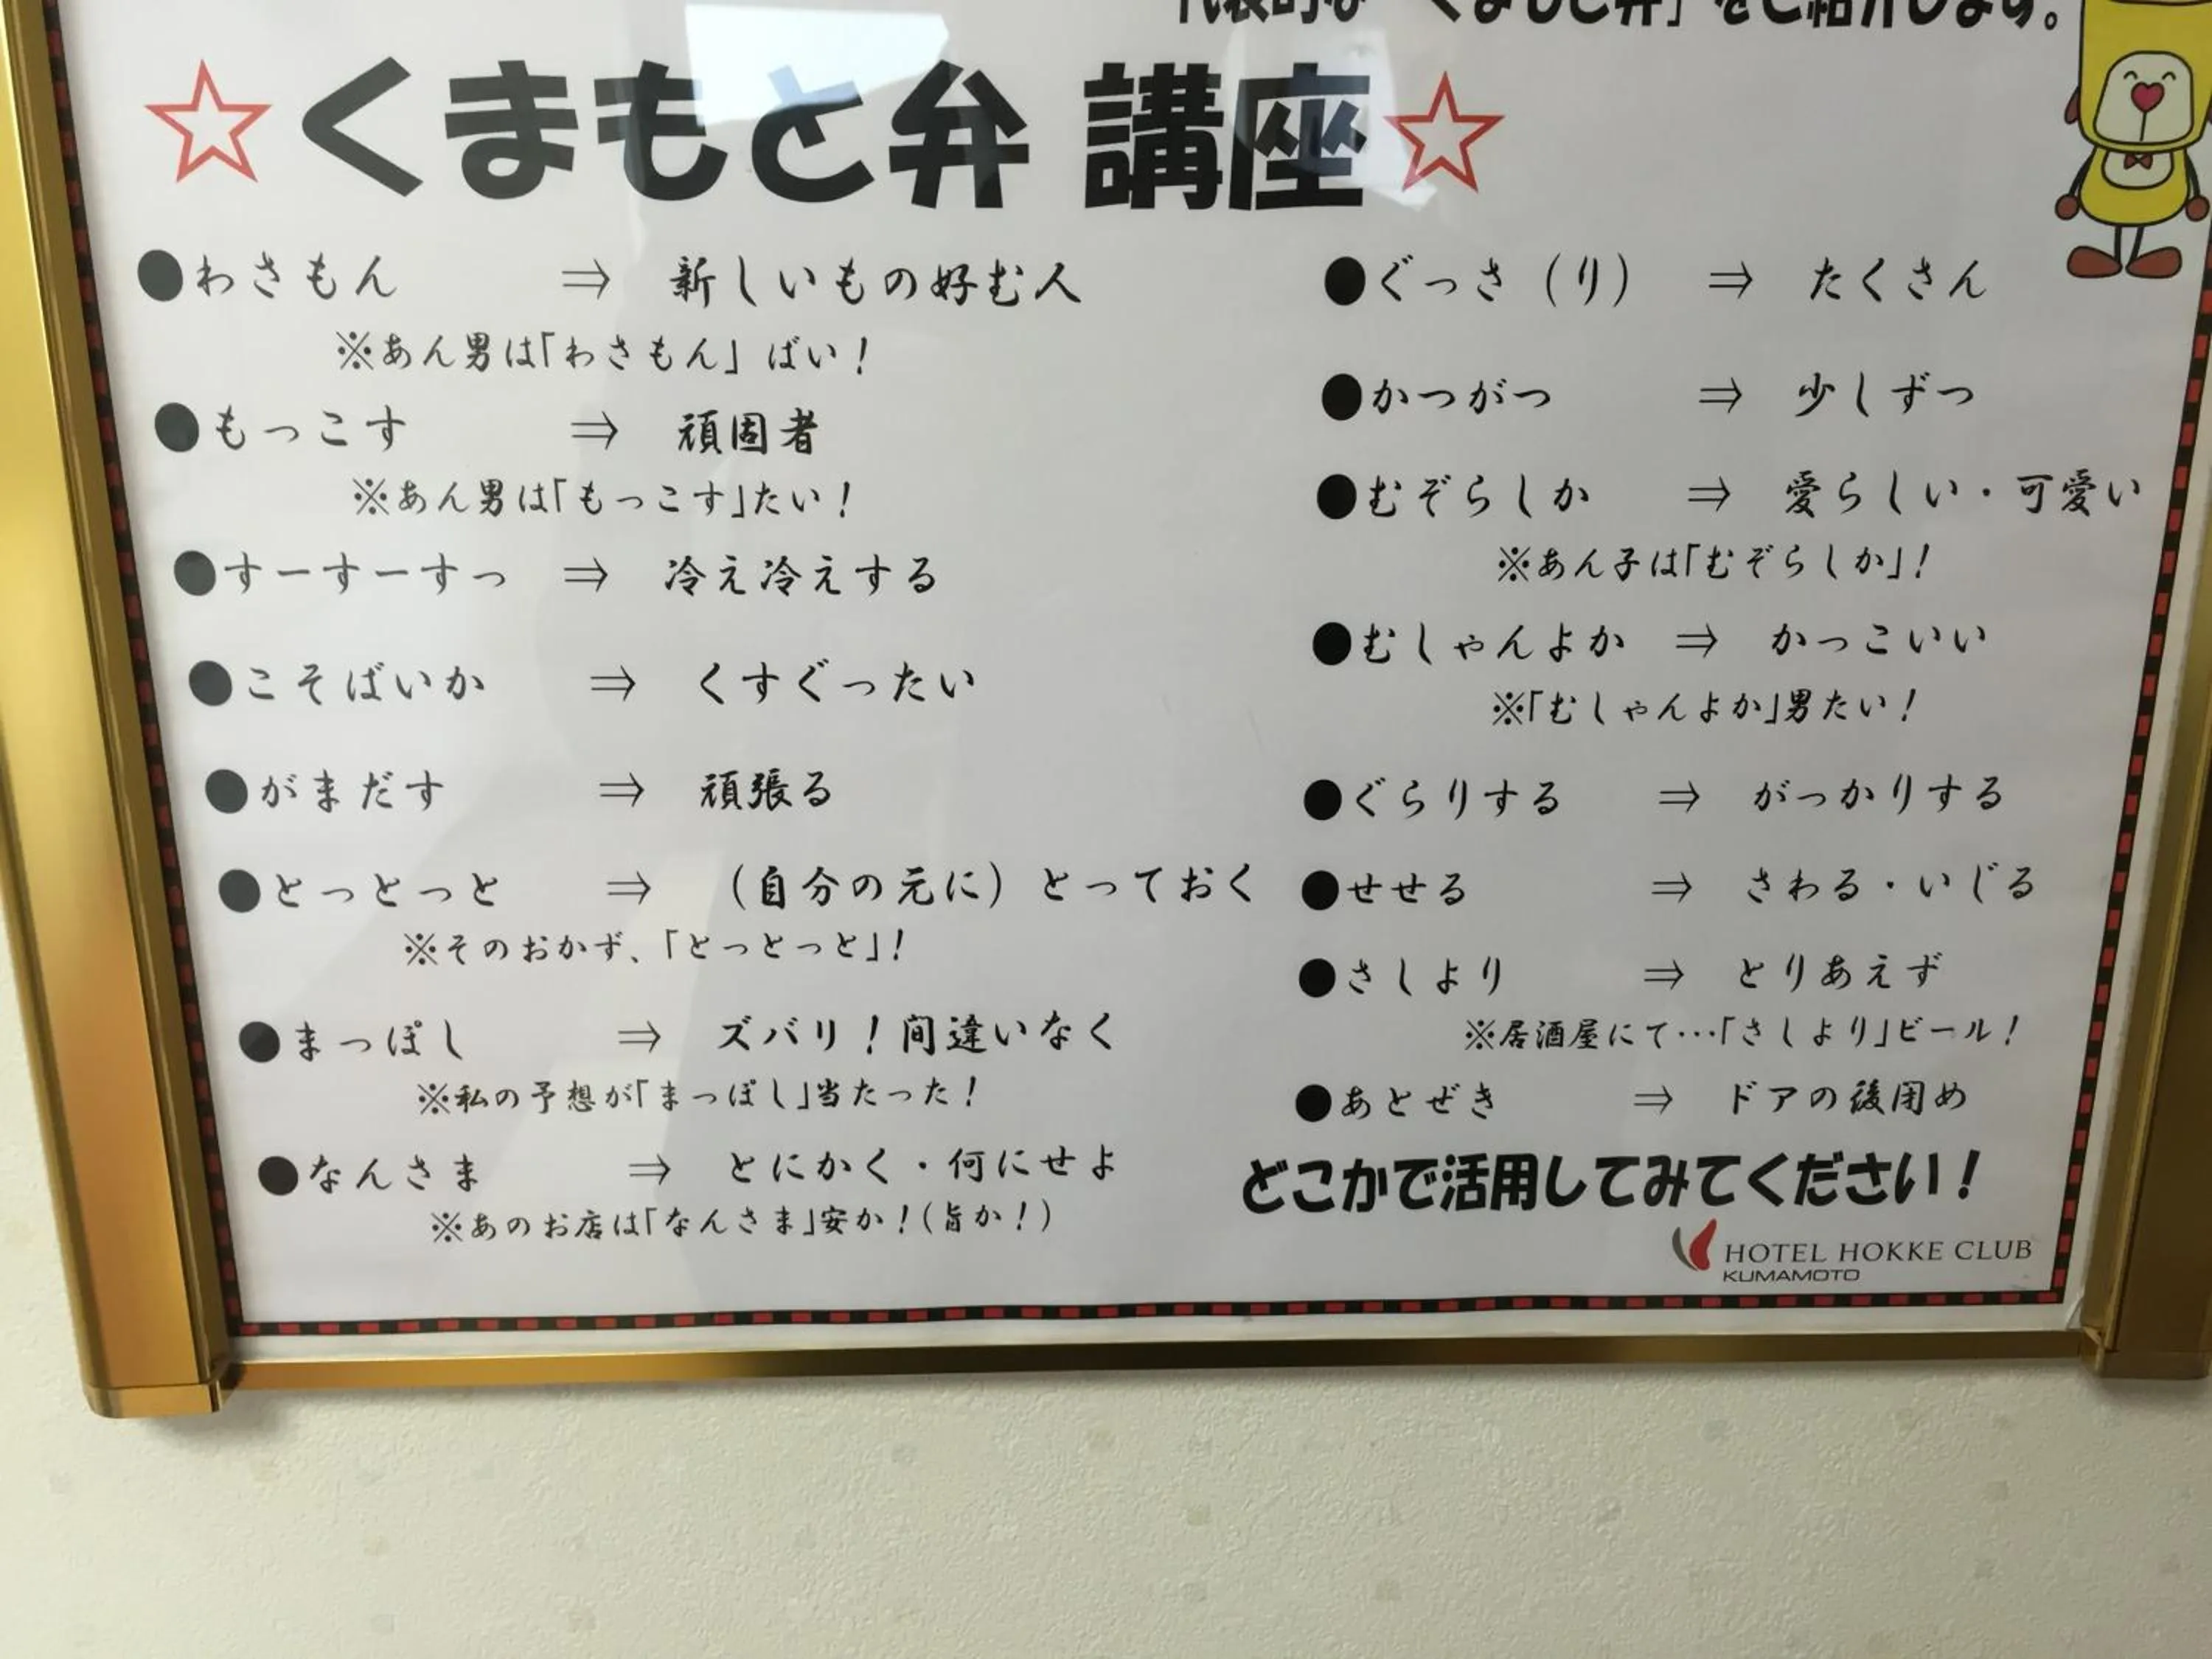 代表的な「くまもと弁」をご紹介します。
☆くまもと弁 講座☆
●わさもん ⇒ 新しいもの好む人
※あん男は「わさもん」ばい！
●もっこす ⇒ 頑固者
※あん男は「もっこす」たい！
●すーすーすっ ⇒ 冷え冷えする
●こそばいか ⇒ くすぐったい
●がまだす ⇒ 頑張る
●とっとっと ⇒ （自分の元に）とっておく
※そのおかず、「とっとっと」！
●まっぽし ⇒ ズバリ！間違いなく
※私の予想が「まっぽし」当たった！
●なんさま ⇒ とにかく・何にせよ
※あのお店は「なんさま」安か！（旨か！）
●ぐっさ（り） ⇒ たくさん
●かつがつ ⇒ 少しずつ
●むぞらしか ⇒ 愛らしい・可愛い
※あん子は「むぞらしか」！
●むしゃんよか ⇒ かっこいい
※「むしゃんよか」男たい！
●ぐらりする ⇒ がっかりする
●せせる ⇒ さわる・いじる
●さしより ⇒ とりあえず
※居酒屋にて…「さしより」ビール！
●あとぜき ⇒ ドアの後閉め
どこかで活用してみてください！
HOTEL HOKKE CLUB
KUMAMOTO